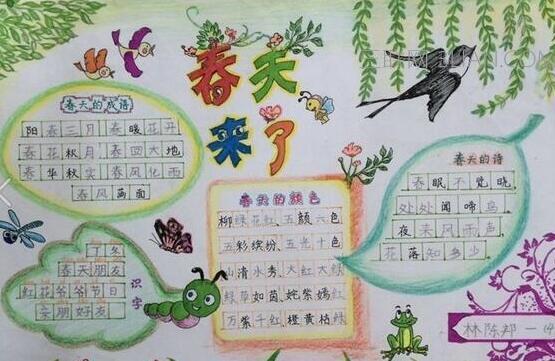 春天
来了
春天的成语
阳春三月 春暖花开
春花秋月 春回大地
春华秋实 春风化雨
春风满面
春天的颜色
柳绿花红、五颜六色
五彩缤纷、五光十色
山清水秀、大红大绿
绿草如茵、姹紫嫣红
万紫千红、橙黄桔绿
春天的诗
春眠不觉晓,
处处闻啼鸟。
夜来风雨声,
花落知多少。
识字
丁冬
春天朋友
红花爷爷节日
亲朋好友
林陈郑 一